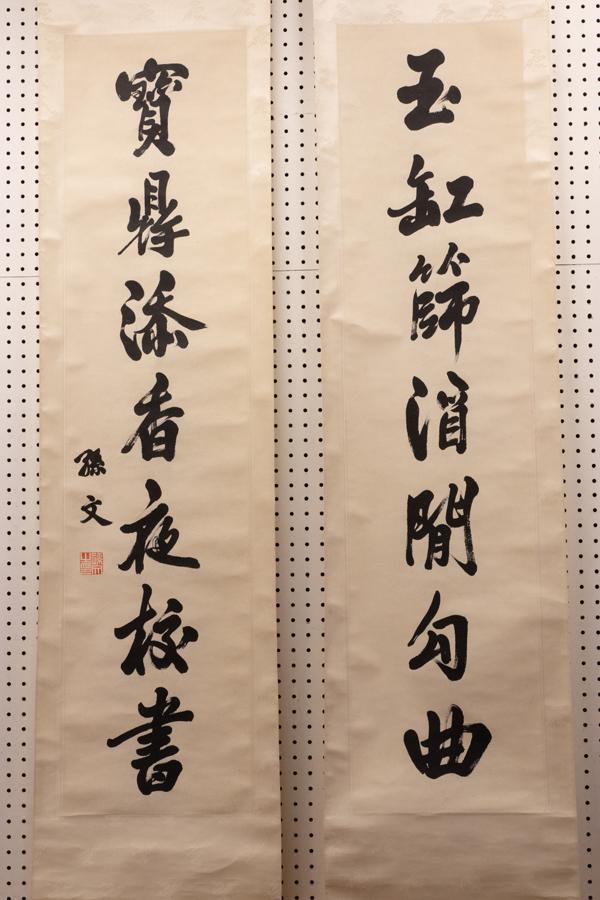 玉缸篩酒閒勾曲
寶鼎添香夜校書
孫文